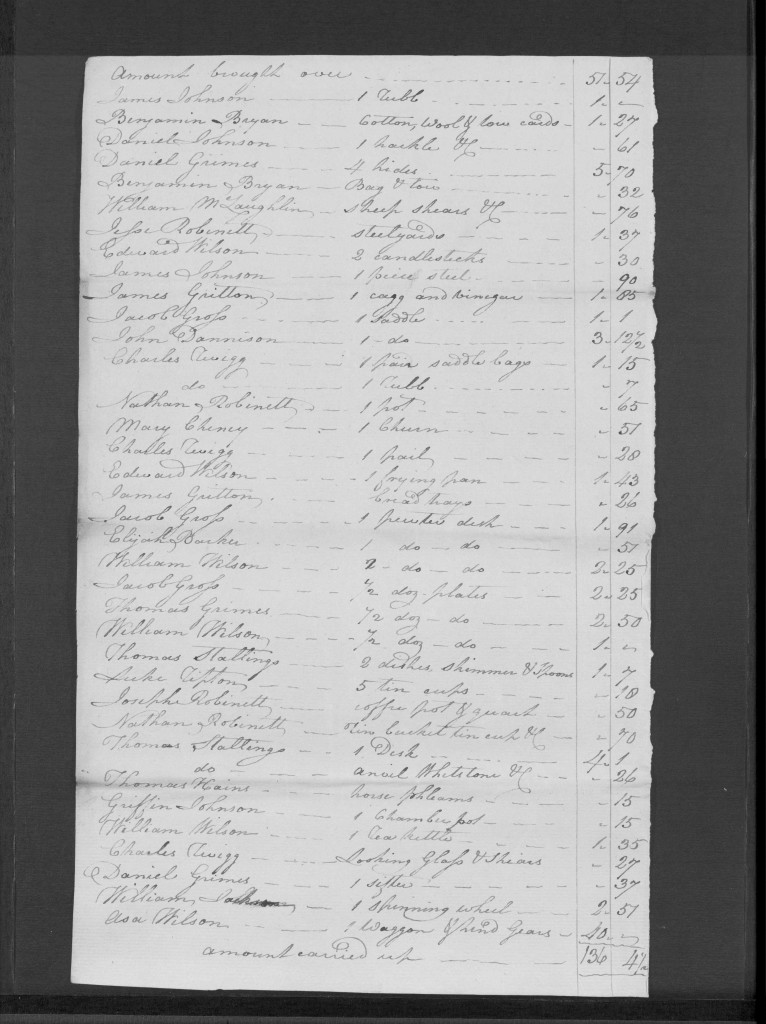 Amount brought over 51 " 54
James Johnson 1 Tubb 1 " "
Benjamin Bryan Cotton, Wool & tow cards 1 " 27
Daniel Johnson 1 hackle &C " 61
Daniel Grimes 4 hides 5 " 70
Benjamin Bryan Bag & tow " 32
William McLaughlin sheep shears &C " 76
Jesse Robinett steelyards 1 " 37
Edward Wilson 2 candlesticks " 30
James Johnson 1 piece steel " 90
James Gritton 1 cagg and vinegar 1 " 85
Jacob Gross 1 saddle 1 " 1
John Dannison 1 do 3 " 12 1/2
Charles Twigg 1 pair saddle bags 1 " 15
do 1 Tubb " 7
Nathan Robinett 1 pot " 65
Mary Cheney 1 Churn " 51
Charles Twigg 1 pail " 28
Edward Wilson 1 frying pan 1 " 43
James Gritton bread trays " 26
Jacob Gross 1 pewter dish 1 " 91
Elijah Parker 1 do do " 51
William Wilson 2 do do 2 " 25
Jacob Gross 1/2 doz plates 2 " 25
Thomas Grimes 1/2 doz do 2 " 50
William Wilson 1/2 doz do 1 " "
Thomas Stallings 2 dishes, skimmer & Spoons 1 " 7
Luke Tipton 5 tin cups " 18
Josephe Robinett coffee pot & quart " 50
Nathan Robinett tin bucket tin cup &C " 70
Thomas Stallings 1 Desk 4 " 1
do anvil Whitstone &C " 26
Thomas Hains horse phleams " 15
Griffin Johnson 1 Chamber pot " 15
William Wilson 1 Tea kettle 1 " 35
Charles Twigg Looking Glass & Shears " 27
Daniel Grimes 1 sifter " 37
William 1 spinning wheel 2 " 51
Asa Wilson 1 Waggon & hind Gears 40 " "
amount carried up 136 4 1/2